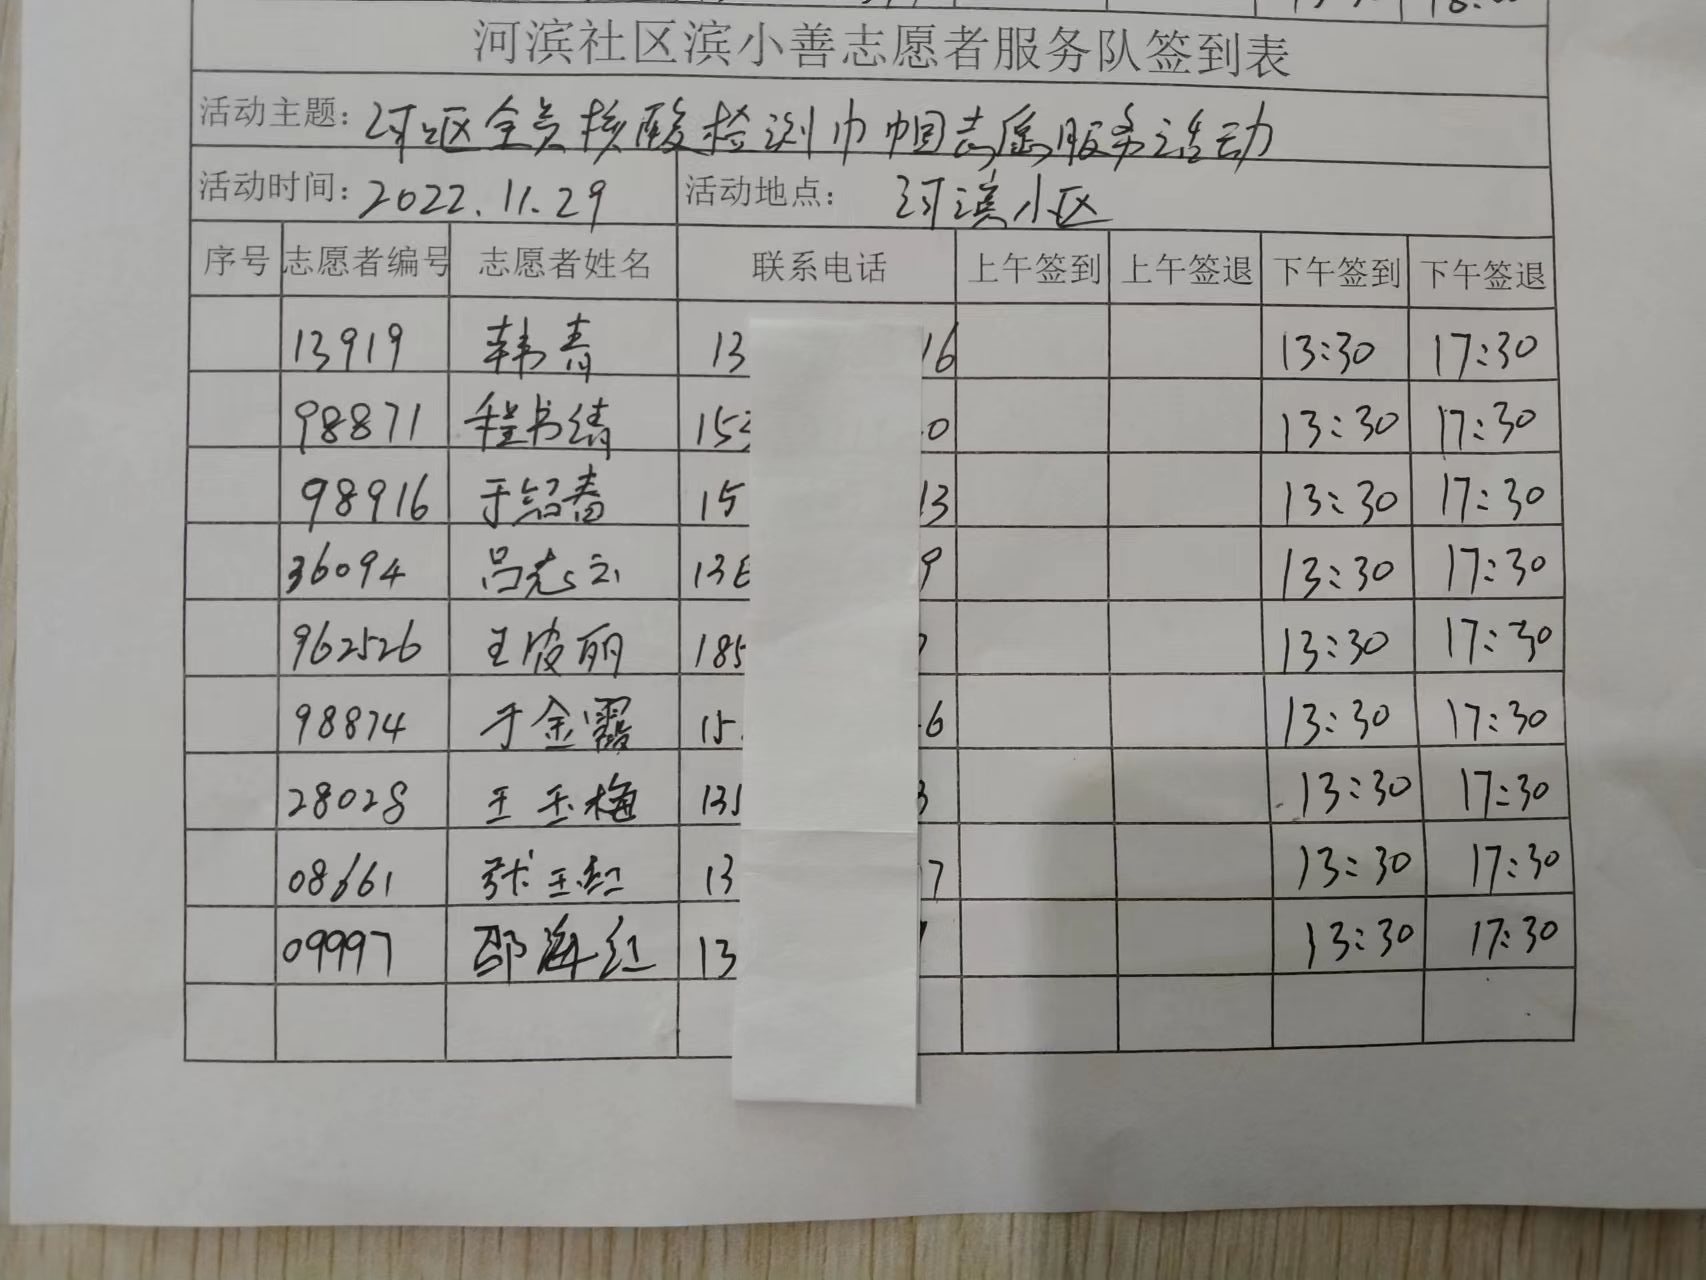 18:00
河滨社区滨小善志愿者服务队签到表
活动主题: 河区全员核酸检测巾帼志愿服务活动
活动时间: 2022.11.29 活动地点: 河滨小区
序号 志愿者编号 志愿者姓名 联系电话 上午签到 上午签退 下午签到 下午签退
13919 韩青 13 16 13:30 17:30
98871 程书绮 153 0 13:30 17:30
98916 于绍春 15 13 13:30 17:30
36094 吕志云 136 9 13:30 17:30
962526 王俊丽 185 13:30 17:30
98874 于金霞 15 6 13:30 17:30
28028 王玉梅 135 3 13:30 17:30
08661 张玉红 13 7 13:30 17:30
09997 邵海红 13 13:30 17:30